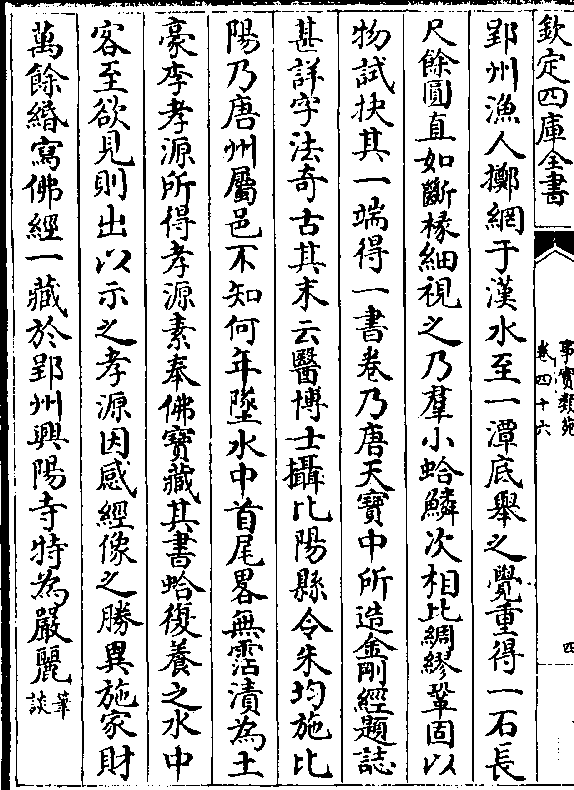 欽定四庫全書
事實類苑
卷四十六
四
郢州漁人擲網于漢水至一潭底舉之覺重得一石長
尺餘圓直如斷椽細視之乃羣小蛤鱗次相比綢繆鞏固以
物試抉其一端得一書卷乃唐天寶中所造金剛經題誌
甚詳字法奇古其末云醫博士攝比陽縣令朱均施比
陽乃唐州屬邑不知何年墜水中首尾畧無霑漬為土
豪李孝源所得孝源素奉佛寶藏其書蛤復養之水中
客至欲見則出以示之孝源因感經像之勝異施家財
萬餘緡寫佛經一藏於郢州興陽寺特為嚴麗筆談